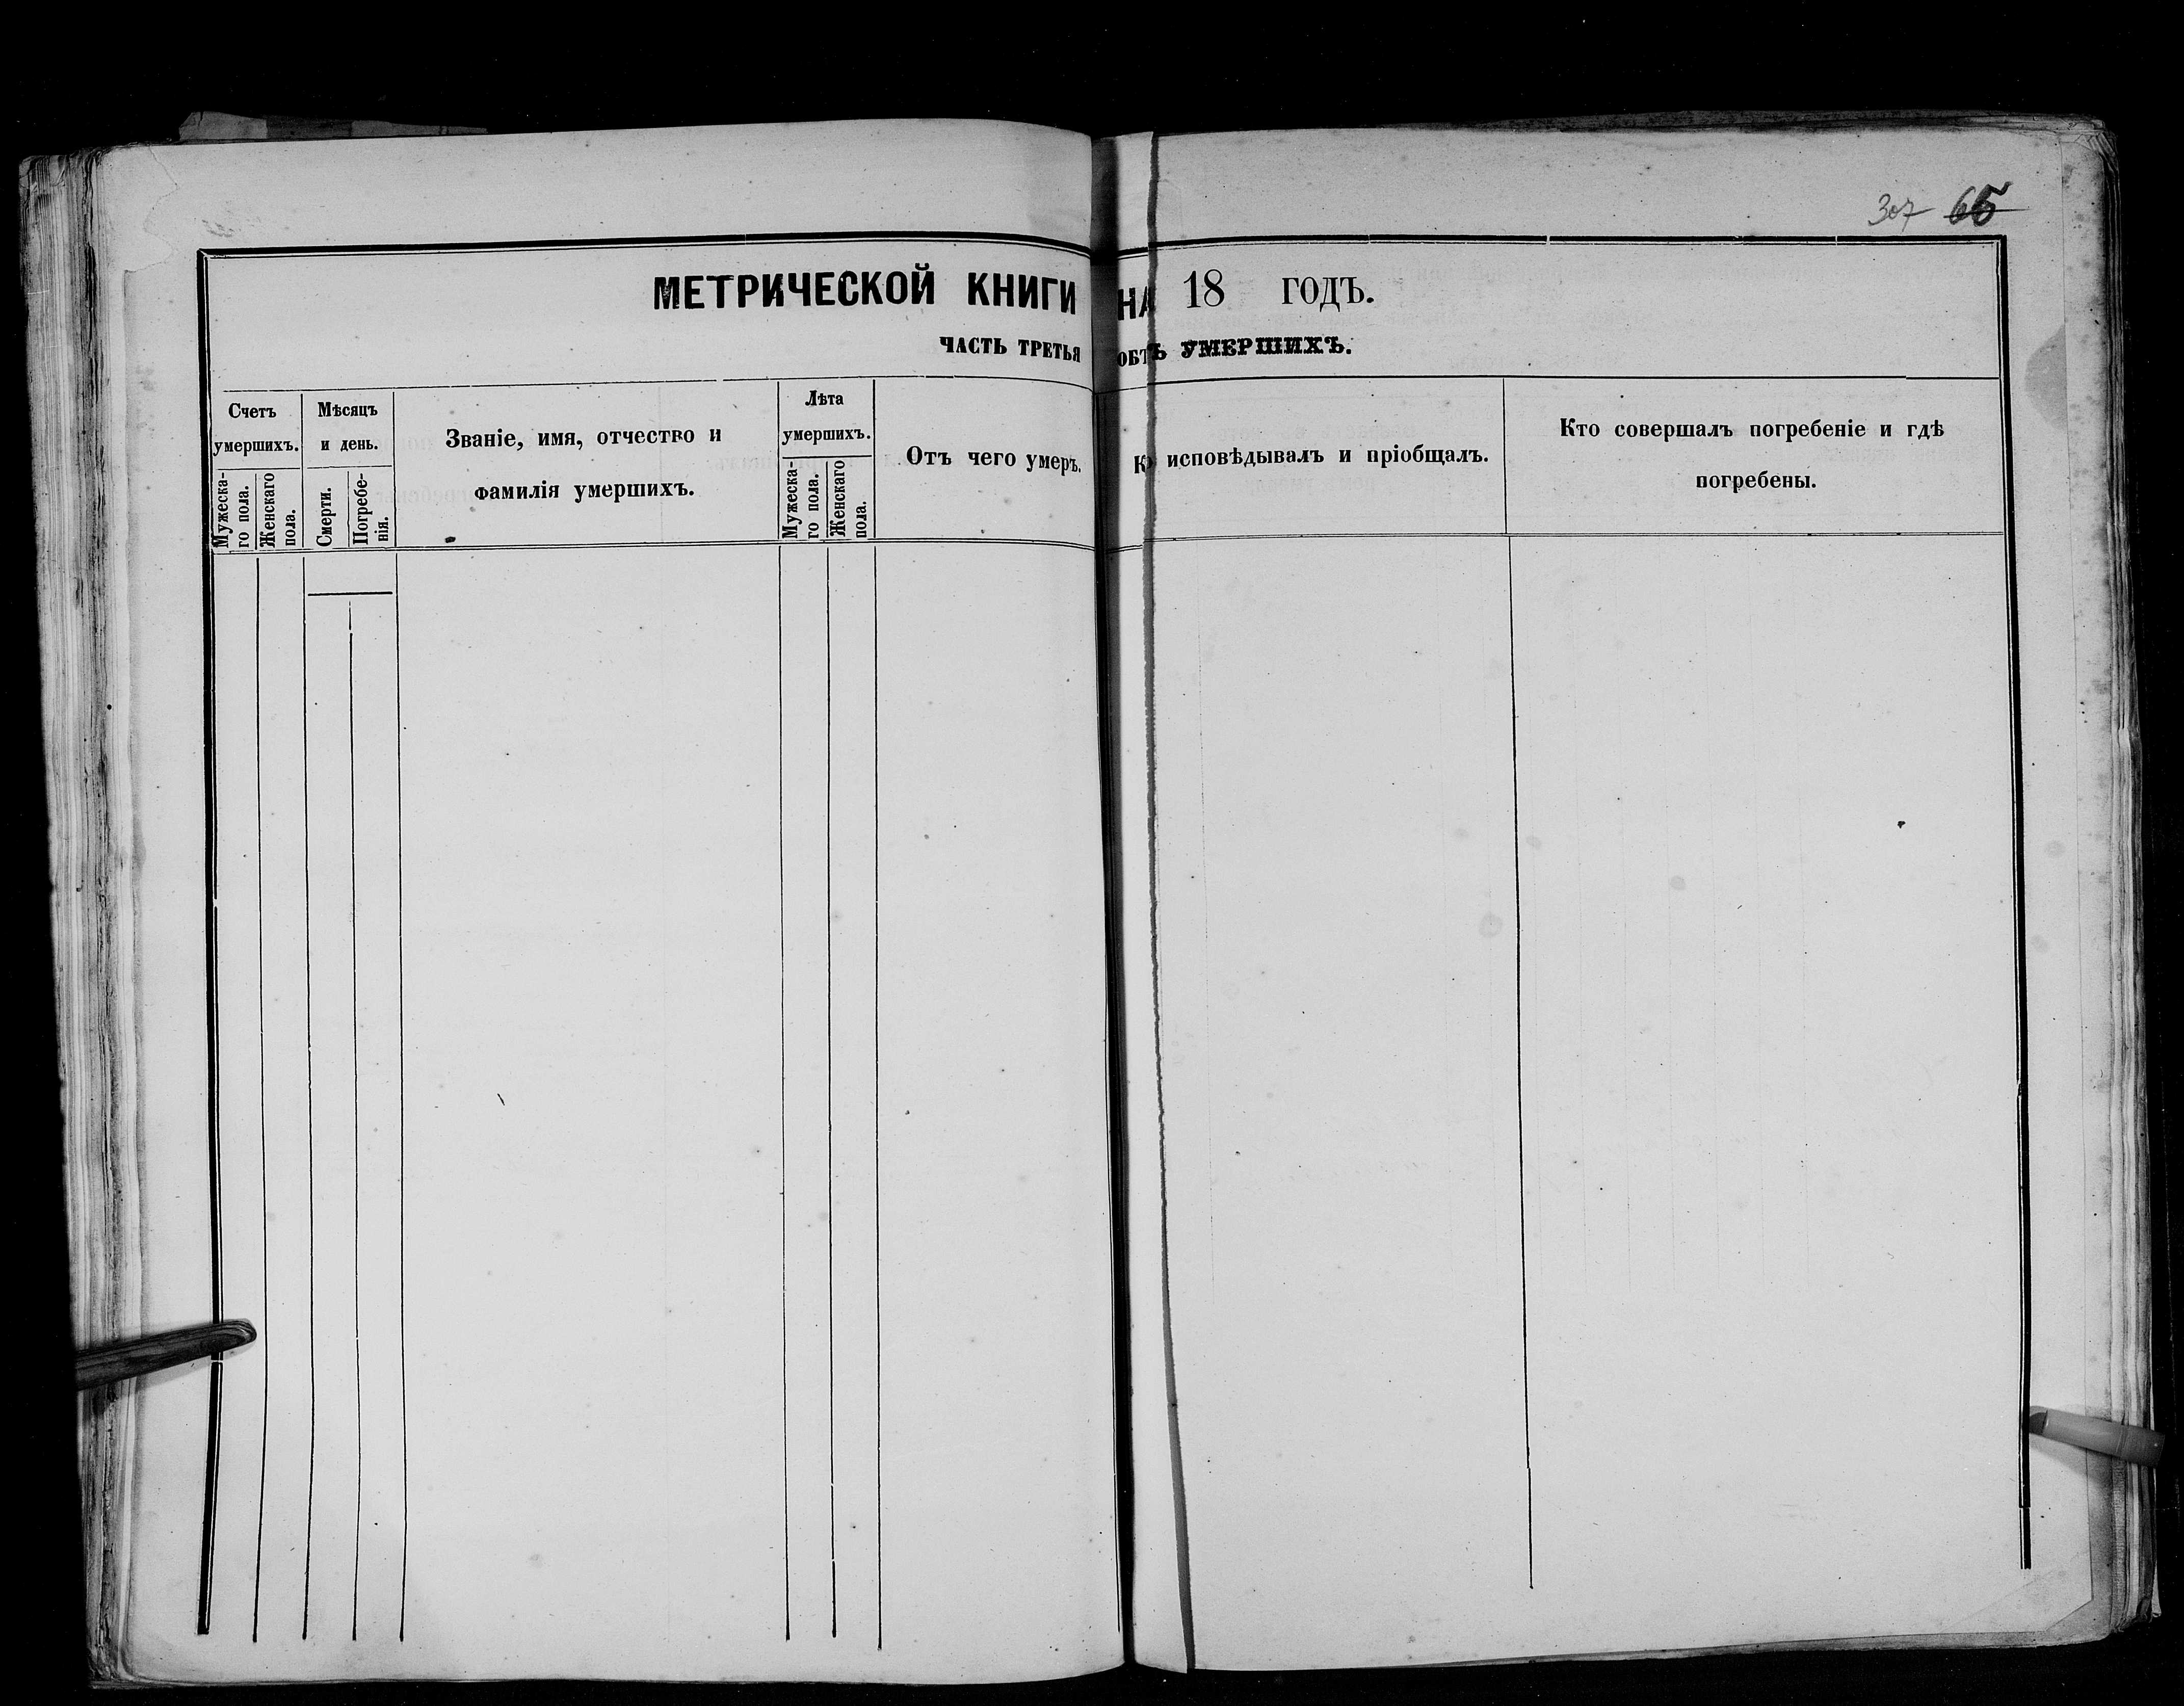 307 65
МЕТРИЧЕСКОЙ КНИГИ НА 18 ГОДЪ.
ЧАСТЬ ТРЕТЬЯ ОБЪ УМЕРШИХЪ.
Счетъ
умершихъ.
Мужеска-
го пола.
Женскаго
пола.
Мѣсяцъ
и день.
Смерти.
Погребе-
нія.
Званіе, имя, отчество и
фамилія умершихъ.
Лѣта
умершихъ.
Мужеска-
го пола.
Женскаго
пола.
Отъ чего умеръ.
исповѣдывалъ и пріобщалъ.
Кто совершалъ погребеніе и гдѣ
погребены.